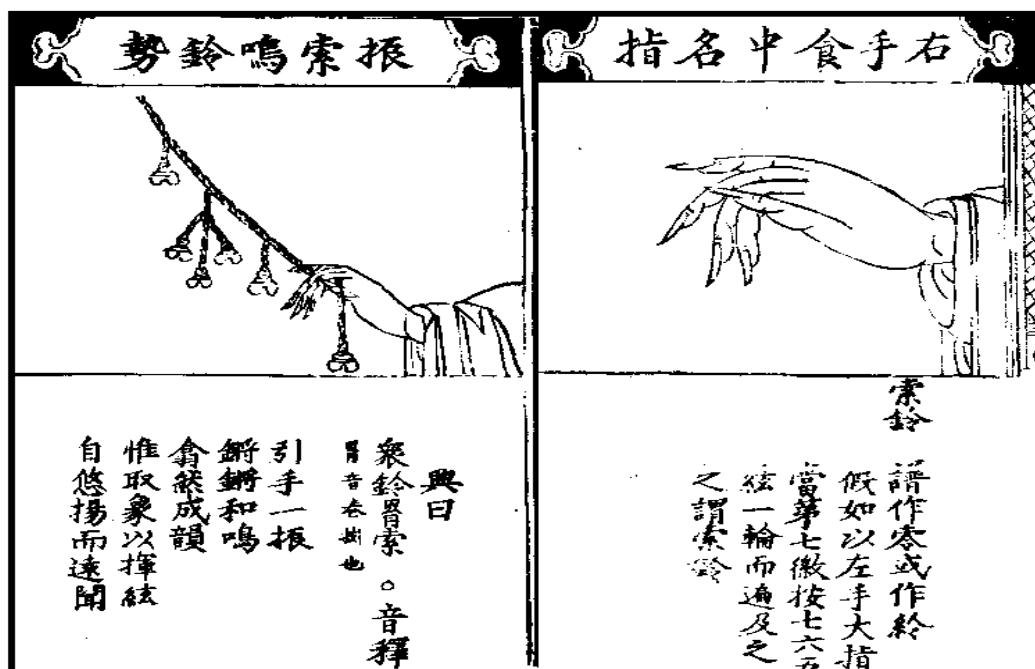 右手食中名指
索鈴
譜作零或作紷
假如以左手大指
當第七徽按七六五
絃一輪而遍及之
之謂索鈴
振索鳴鈴勢
興曰
衆鈴罥索。音釋
罥音卷掛也
引手一振
鏘鏘和鳴
翕然成韻
惟取象以揮絃
自悠揚而遠聞